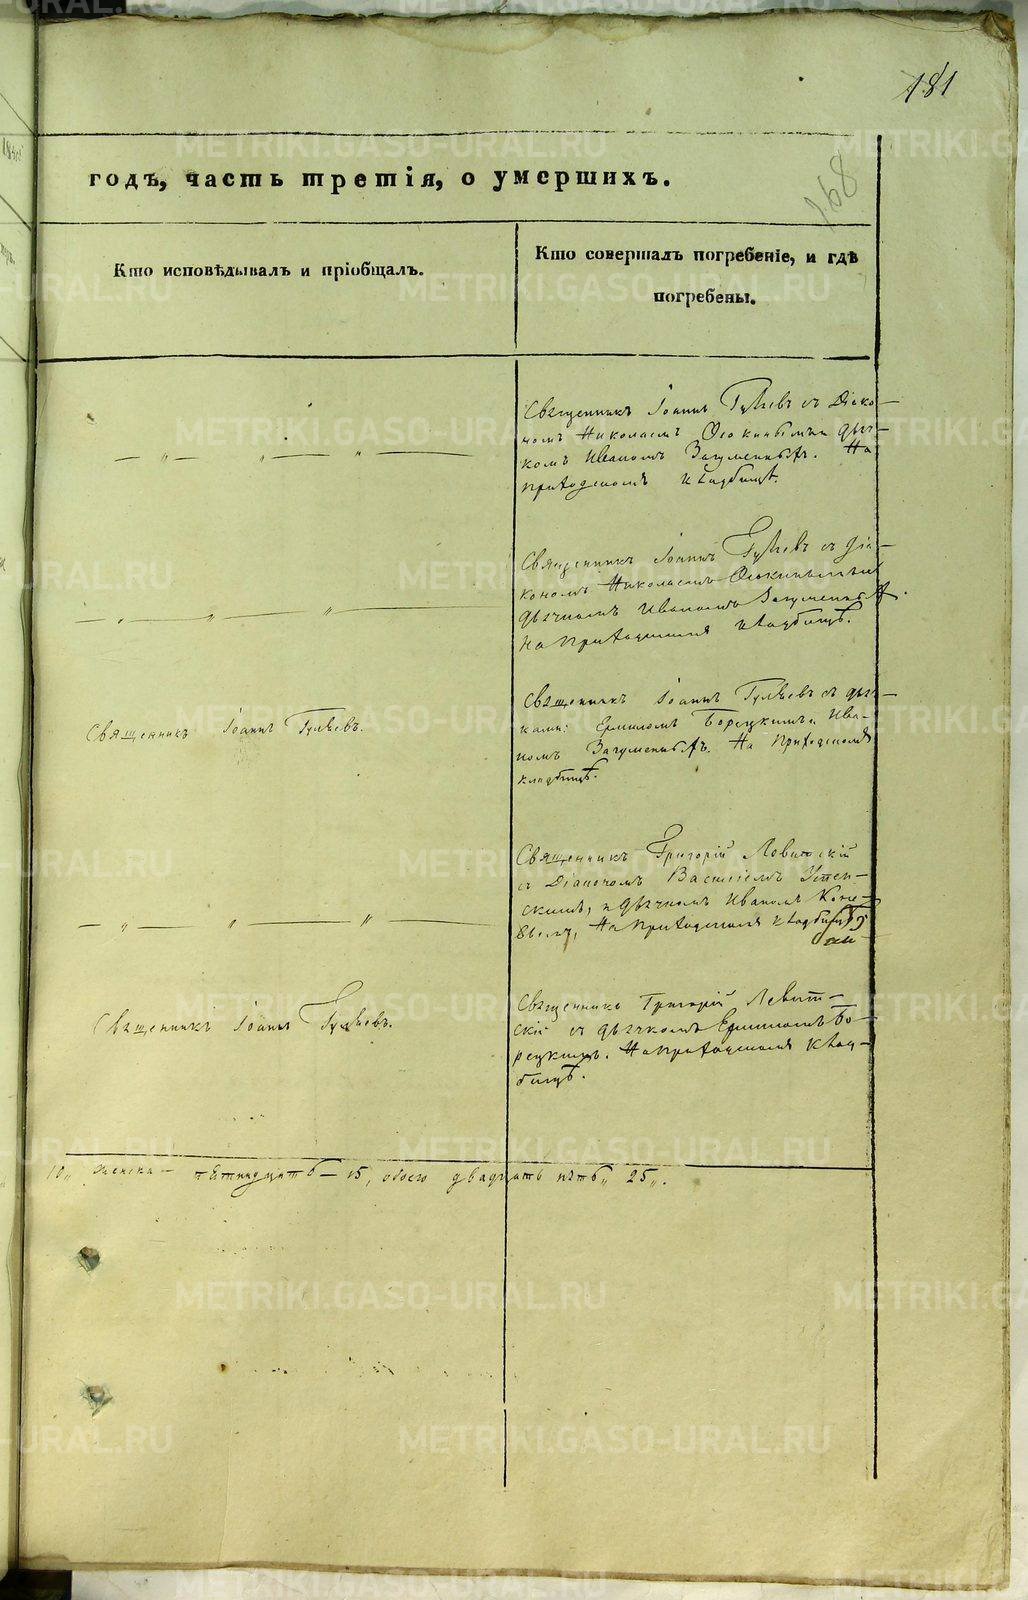 181
168
годъ, часть третія, о умершихъ.
Кто исповѣдывалъ и пріобщалъ.
Кто совершалъ погребеніе, и гдѣ
погребены.
Священникъ Іоаннъ Гуляевъ съ Діако-
номъ Николаемъ Осокинымъ и дьяч-
комъ Иваномъ Загуменныхъ. На
приходскомъ кладбищѣ.
Священникъ Іоаннъ Гуляевъ съ Діа-
кономъ Николаемъ Осокинымъ и
дьячкомъ Иваномъ Загуменныхъ.
На приходскомъ кладбищѣ.
Священникъ Іоаннъ Гуляевъ.
Священникъ Іоаннъ Гуляевъ съ дьяч-
ками: Ермиломъ Борецкимъ и Ива-
номъ Загуменныхъ. На приходскомъ
кладбищѣ.
Священникъ Григорій Левитскій
съ Діакономъ Василіемъ Успен-
скимъ, и дьячкомъ Иваномъ
На приходскомъ кладбищѣ
Священникъ Іоаннъ Гуляевъ.
Священникъ Григорій Левит-
скій съ дьячкомъ Ермиломъ Бо-
рецкимъ. На приходскомъ клад-
бищѣ.
10„ женска – пятнадцать – 15, обоего двадцать пять„ 25„.
METRIKI.GASO-URAL.RU